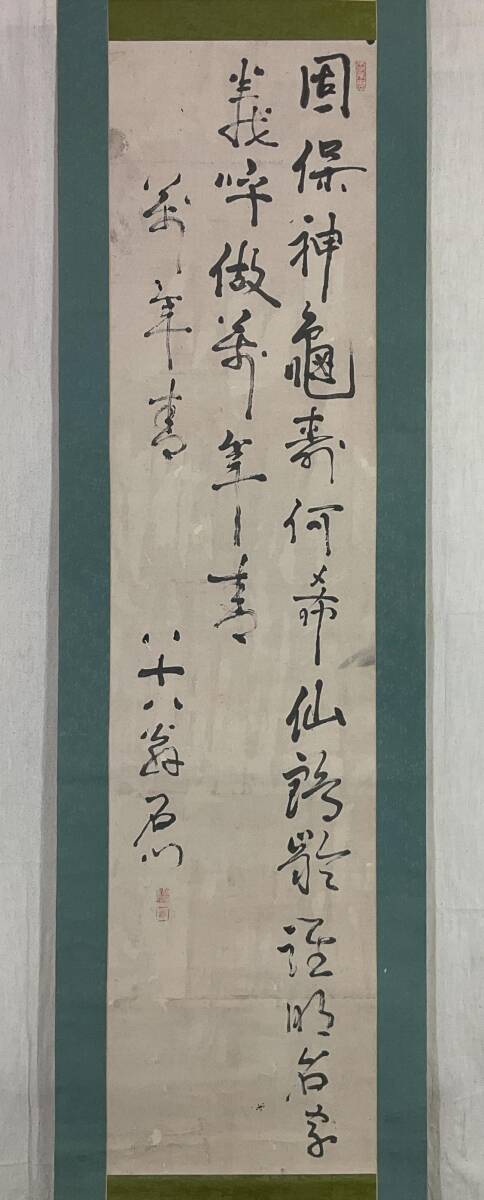 固保神龜壽何希仙鶴齡證明名家
義呼做萬年青
萬年青
八十八翁石心